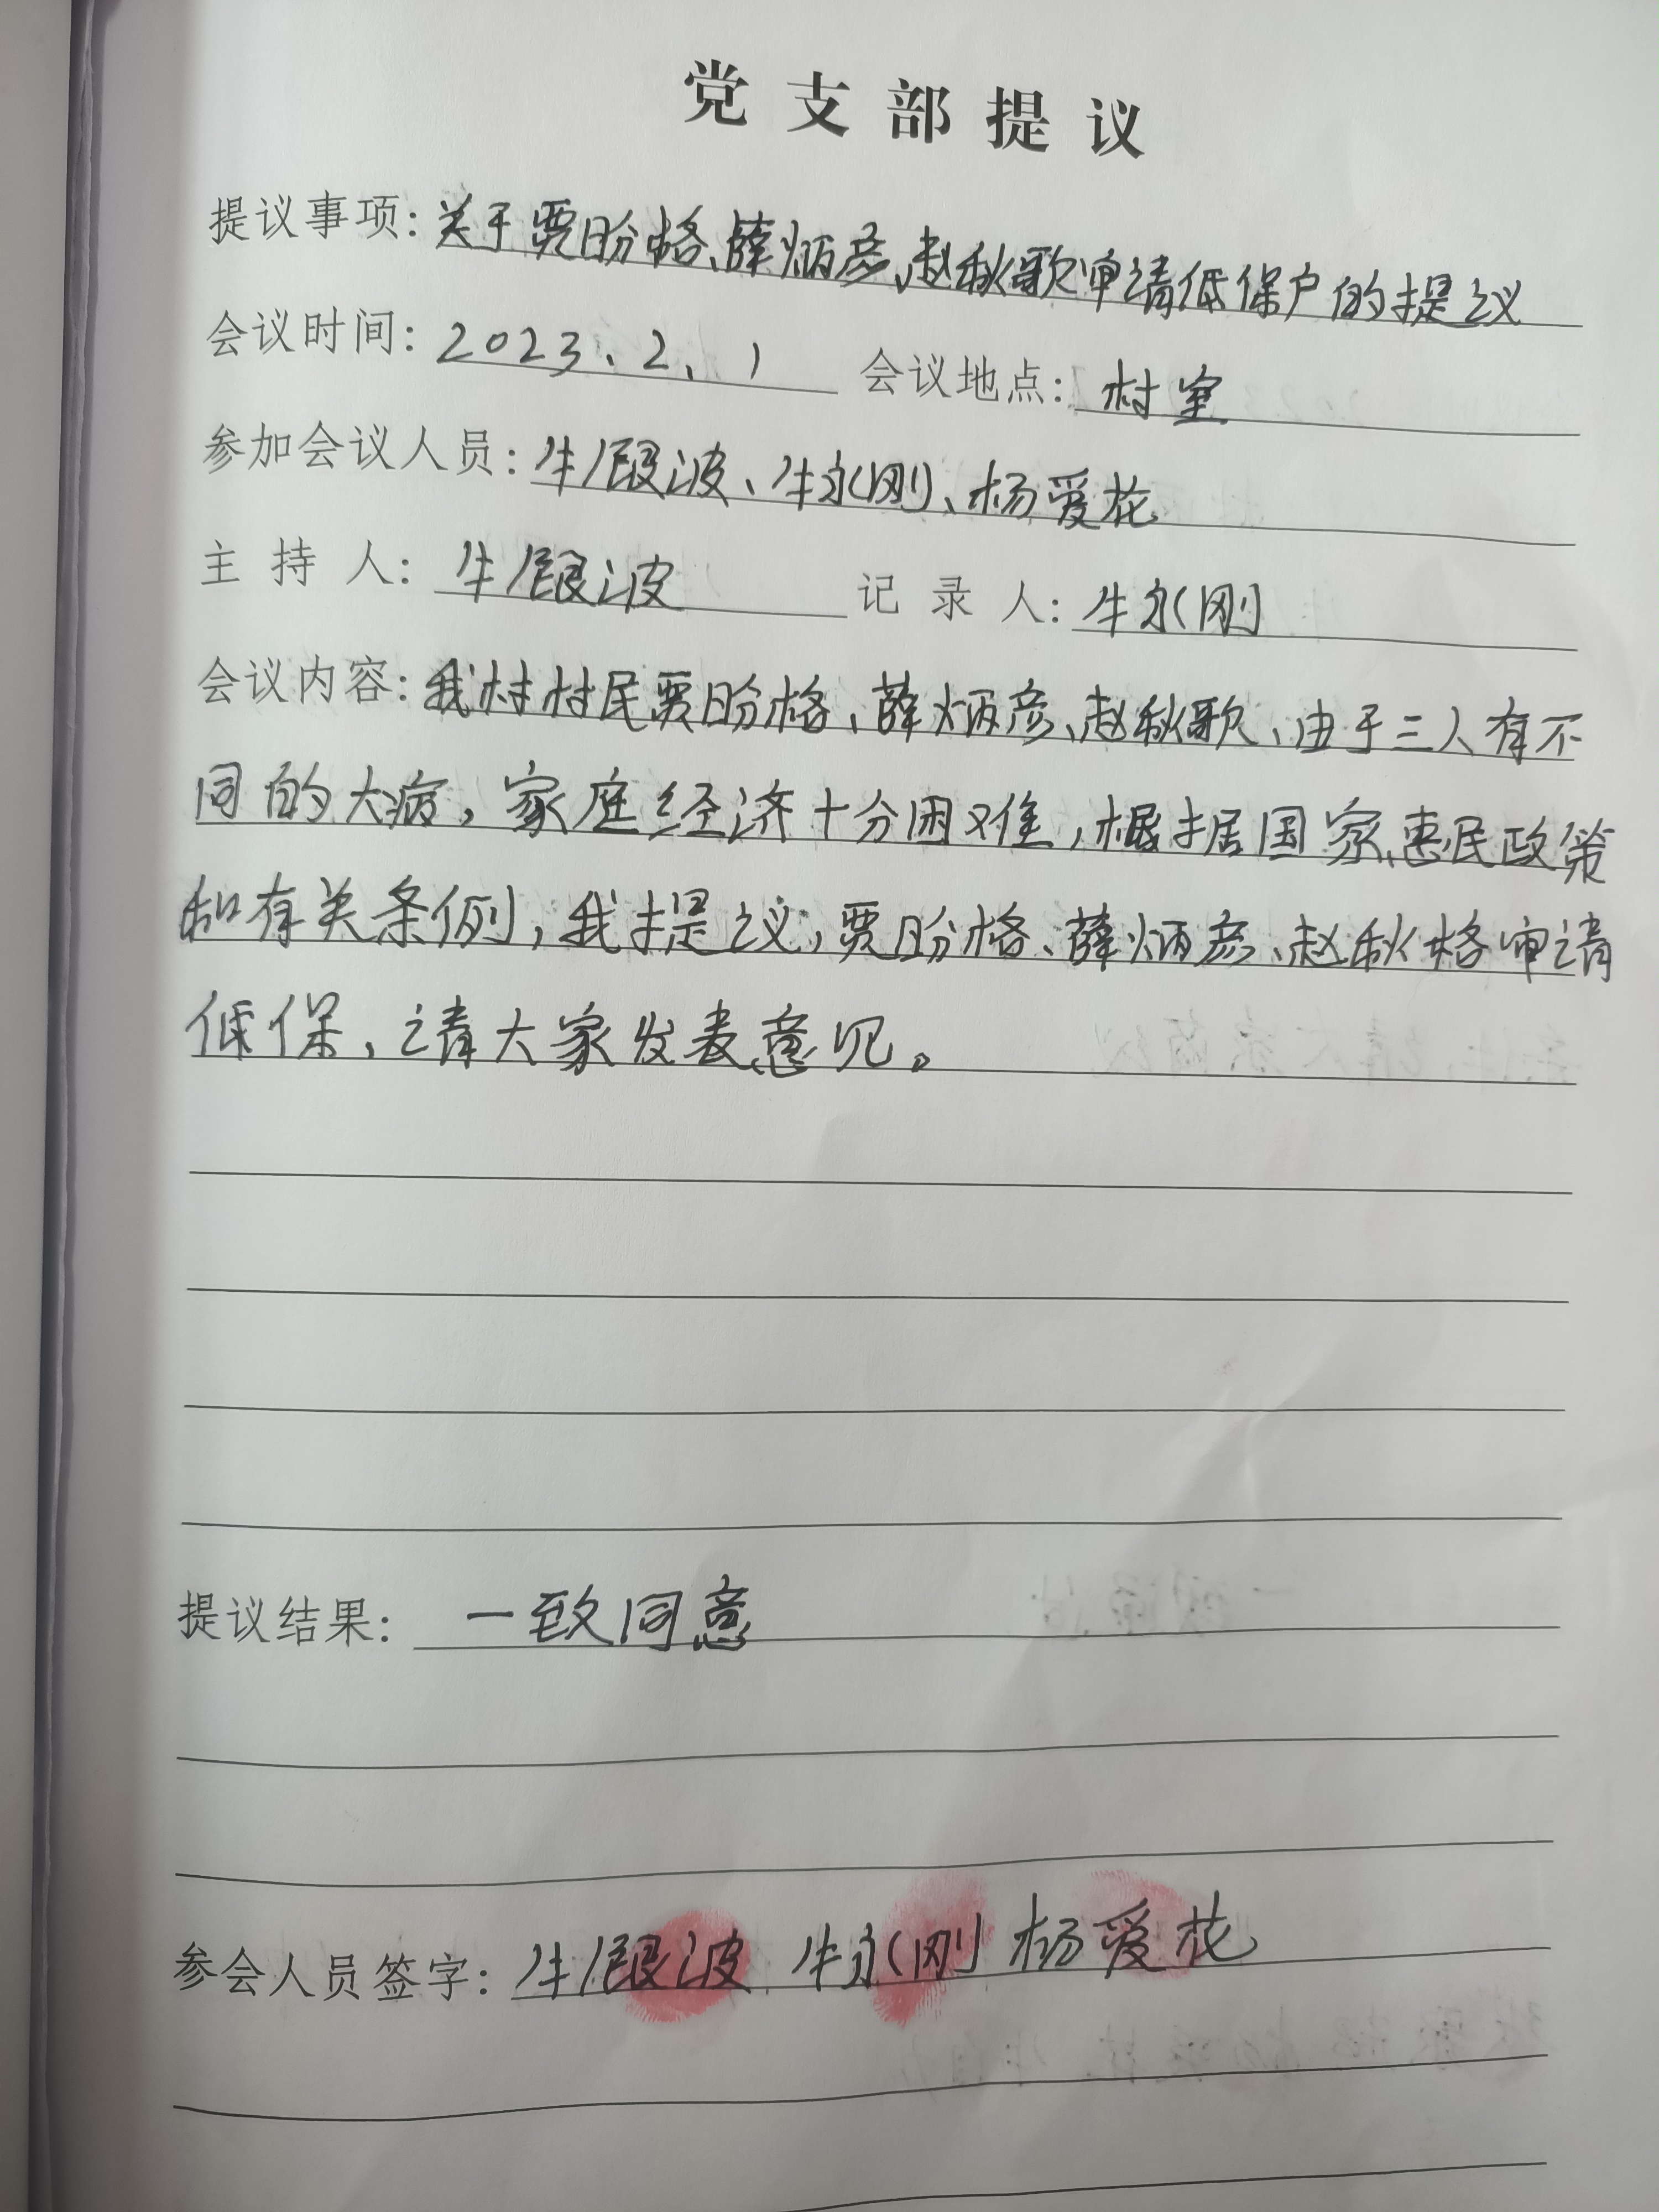 党支部提议
提议事项：关于贾盼格、薛炳彦、赵秋歌申请低保户的提议
会议时间：2023、2、1 会议地点：村室
参加会议人员：牛银波、牛永刚、杨爱花
主持人：牛银波 记录人：牛永刚
会议内容：我村村民贾盼格、薛炳彦、赵秋歌、由于三人有不
同的大病，家庭经济十分困难，根据国家惠民政策
和有关条例，我提议，贾盼格、薛炳彦、赵秋格申请
低保，请大家发表意见。
提议结果：一致同意
参会人员签字：牛银波 牛永刚 杨爱花